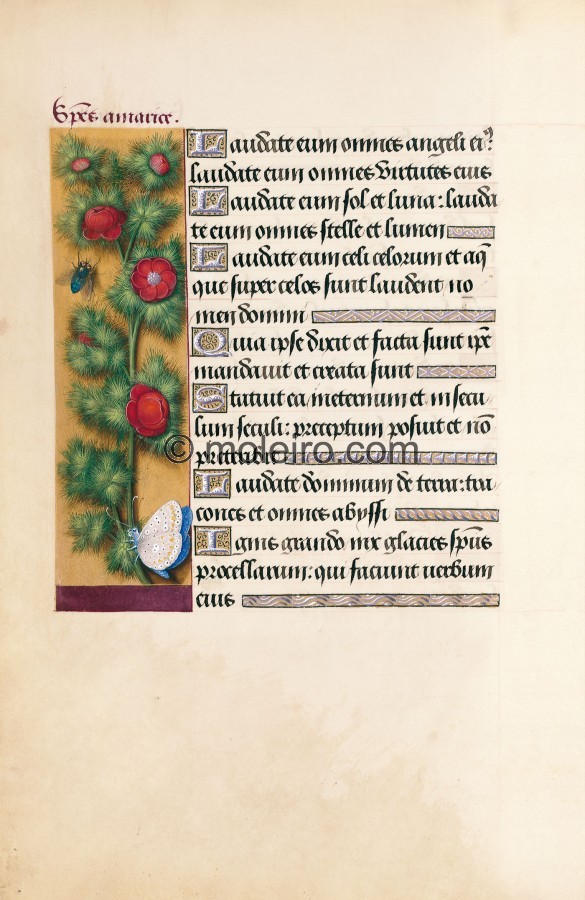 Sp̃es amarice.
Laudate eum omnes angeli eiꝰ:
laudate eum omnes virtutes eius
Laudate eum sol et luna: lauda
te eum omnes stelle et lumen
Laudate eum celi celorum et aq̃
que super celos sunt laudent no
men domini
Quia ipse dixit et facta sunt ip̃e
mandavit et creata sunt
Statuit ea ineternum et in secu
lum seculi: preceptum posuit et nõ
preteribit
© moleiro.com
Laudate dominum de terra: dra
cones et omnes abyssi
Ignis grando nix glacies sp̃us
procellarum: qui faciunt verbum
eius